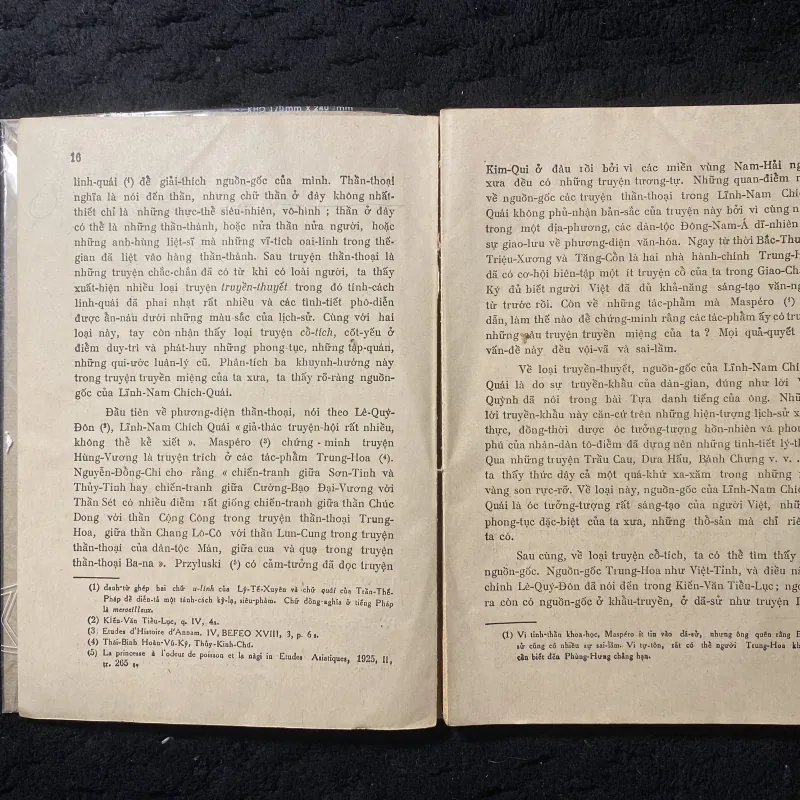 KHỔ 175mm X 240 mm
16
linh-quái (¹) để giải-thích nguồn-gốc của mình. Thần-thoại
nghĩa là nói đến thần, nhưng chữ thần ở đây không nhất-
thiết chỉ là những thực-thể siêu-nhiên, vô-hình ; thần ở đây
có thể là những thần-thánh, hoặc nửa thần nửa người, hoặc
những anh-hùng liệt-sĩ mà những vĩ-tích oai-linh trong thế-
gian đã liệt vào hàng thần-thánh. Sau truyện thần-thoại là
những truyện chắc-chắn đã có từ khi có loài người, ta thấy
xuất-hiện nhiều loại truyện truyền-thuyết trong đó tính-cách
linh-quái đã phai nhạt rất nhiều và các tình-tiết phô-diễn
được ẩn-náu dưới những màu-sắc của lịch-sử. Cùng với hai
loại này, tay còn nhận thấy loại truyện cổ-tích, cốt-yếu ở
điểm duy-trì và phát-huy những phong-tục, những tập-quán,
những qui-ước luân-lý cũ. Phân-tích ba khuynh-hướng này
trong truyện truyền miệng của ta xưa, ta thấy rõ-ràng nguồn-
gốc của Lĩnh-Nam Chích-Quái.
Đầu tiên về phương-diện thần-thoại, nói theo Lê-Quý-
Đôn (²), Lĩnh-Nam Chích Quái « giả-thác truyện-hội rất nhiều,
không thể kể xiết ». Maspéro (³) chứng - minh truyện
Hùng-Vương là truyện trích ở các tác-phẩm Trung-Hoa (⁴).
Nguyễn-Đổng-Chi cho rằng « chiến-tranh giữa Sơn-Tinh và
Thủy-Tinh hay chiến-tranh giữa Cường-Bạo Đại-Vương với
Thần Sét có nhiều điểm rất giống chiến-tranh giữa thần Chúc
Dong với thần Cộng Công trong truyện thần-thoại Trung-
Hoa, giữa thần Chang Lô-Cô với thần Lun-Cung trong truyện
thần-thoại của dân-tộc Mán, giữa cua và quạ trong truyện
thần-thoại Ba-na ». Przyluski (⁵) có cảm-tưởng đã đọc truyện
(1) danh-từ ghép hai chữ u-linh của Lý-Tế-Xuyên và chữ quái của Trần-Thế-
Pháp để diễn-tả một tính-cách kỳ-lạ, siêu-phàm. Chữ đồng-nghĩa ở tiếng Pháp
là merveilleux.
(2) Kiến-Văn Tiểu-Lục, q. IV, 4a.
(3) Etudes d'Histoire d'Annam. IV, BEFEO XVIII, 3, p. 6 s.
(4) Thái-Bình Hoàn-Vũ-Ký, Thủy-Kinh-Chú.
(5) La princesse à l'odeur de poisson et la nàgi in Etudes Asiatiques, 1925, II,
tr. 265 sv
Kim-Qui ở đâu rồi bởi vì các miền vùng Nam-Hải
xưa đều có những truyện tương-tự. Những quan-điểm
về nguồn-gốc các truyện thần-thoại trong Lĩnh-Nam Chích
Quái không phủ-nhận bản-sắc của truyện này bởi vì cùng
trong một địa-phương, các dân-tộc Đông-Nam-Á dĩ-nhiên
sự giao-lưu về phương-diện văn-hóa. Ngay từ thời Bắc-Thuộc
Triệu-Xương và Tăng-Cổn là hai nhà hành-chính Trung-
đã có cơ-hội biên-tập một ít truyện cổ của ta trong Giao-
Ký đủ biết người Việt đã dủ khả-năng sáng-tạo văn-
từ trước rồi. Còn về những tác-phẩm mà Maspéro (¹)
dẫn, làm thế nào để chứng-minh rằng các tác-phẩm ấy có trước
những câu truyện truyền miệng của ta ? Mọi quả-quyết
vấn-đề này đều vội-vã và sai-lầm.
Về loại truyền-thuyết, nguồn-gốc của Lĩnh-Nam Chích
Quái là do sự truyền-khẩu của dân-gian, đúng như lời
Quỳnh đã nói trong bài Tựa danh tiếng của ông. Những
lời truyền-khẩu này căn-cứ trên những hiện-tượng lịch-sử
thực, đồng-thời được óc tưởng-tượng hồn-nhiên và phong
phú của nhân-dân tô-điểm đã dựng nên những tình-tiết lý-
Qua những truyện Trầu Cau, Dưa Hấu, Bánh Chưng v. v. .
ta thấy thức dậy cả một quá-khứ xa-xăm trong những
vàng son rực-rỡ. Về loại này, nguồn-gốc của Lĩnh-Nam Chích
Quái là óc tưởng-tượng rất sáng-tạo của người Việt, những
phong-tục đặc-biệt của ta xưa, những thổ-sản mà chỉ
ta có.
Sau cùng, về loại truyện cổ-tích, ta có thể tìm thấy
nguồn-gốc. Nguồn-gốc Trung-Hoa như Việt-Tỉnh, và điều
chính Lê-Quý-Đôn đã nói đến trong Kiến-Văn Tiểu-Lục ;
ra còn có nguồn-gốc ở khẩu-truyền, ở dã-sử như truyện
(1) Vì tinh-thần khoa-học, Maspéro ít tin vào dã-sử, nhưng ông quên rằng
sử cũng có nhiều sự sai-lầm. Vì tự-tôn, rất có thể người Trung-Hoa
cần biết đến Phùng-Hưng chẳng hạn.